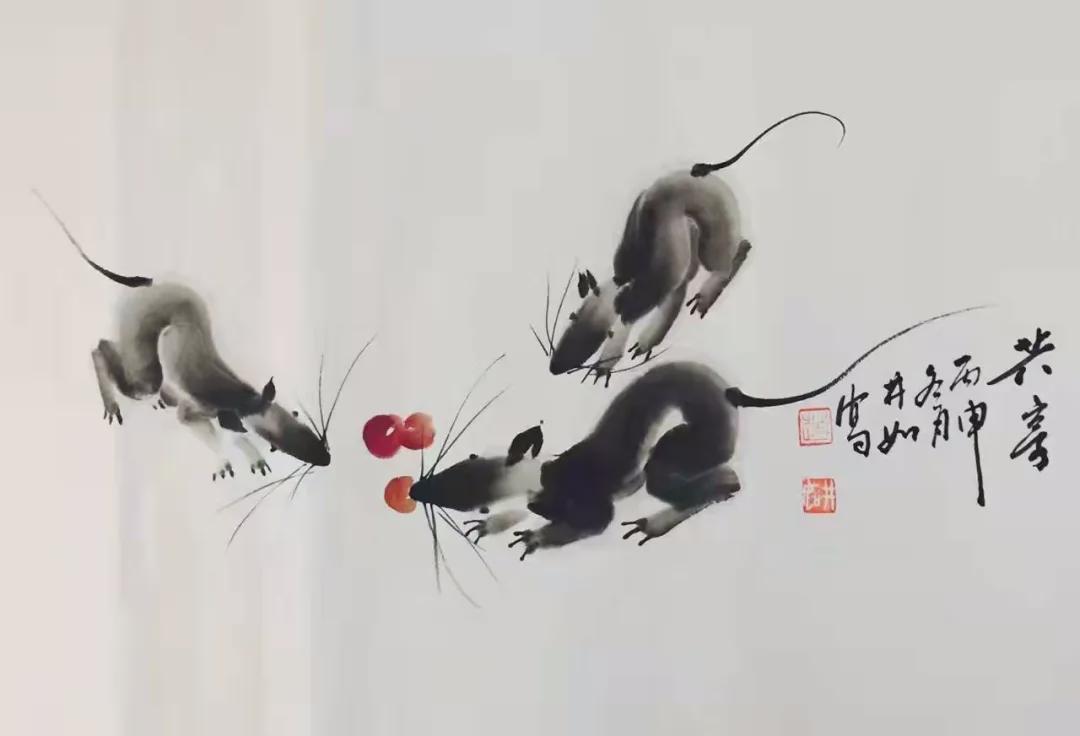 共享
丙申
冬月
井如
写